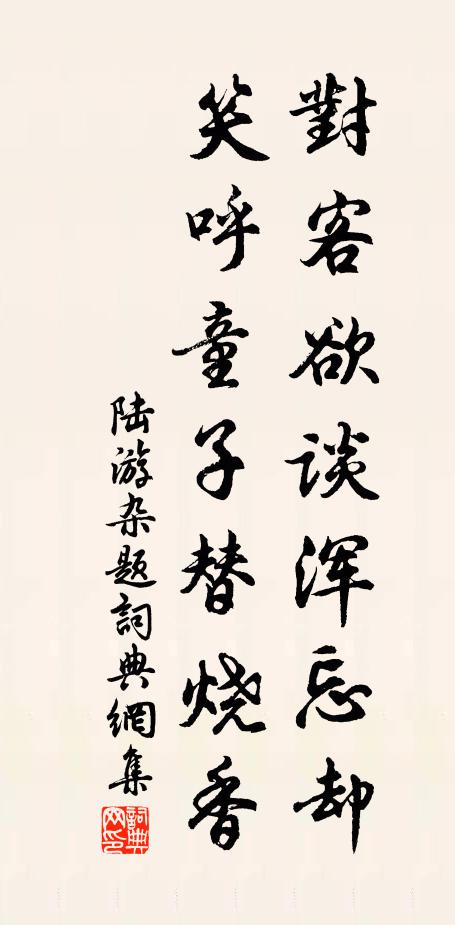 對客欲谈浑忘却
笑呼童子替烧香
陆游杂题詞典網集
詞典网印